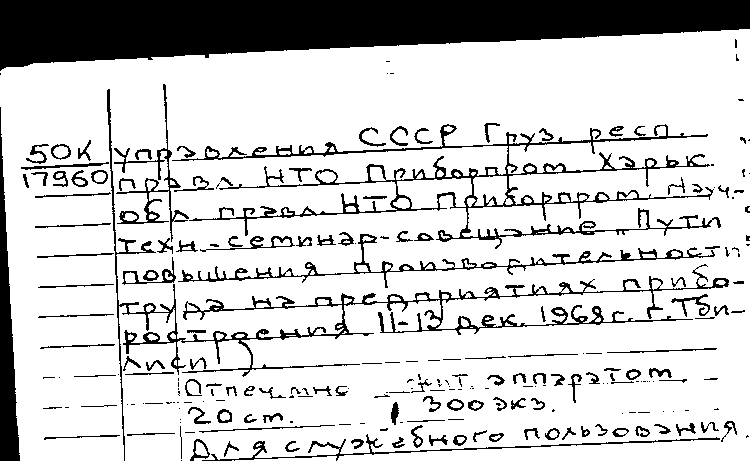 50К управления СССР Груз. респ.
17960 правл. НТО Приборпром. Харьк.
обл. правл. НТО Приборпром. Науч.-
техн.-семинар-совещание „Пути
повышения производительности
труда на предприятиях прибо-
ростроения. 11-13 дек. 1968 г. г. Тби-
лиси").
Отпеч. множит. аппаратом.
20 ст. 300 экз.
Для служебного пользования.